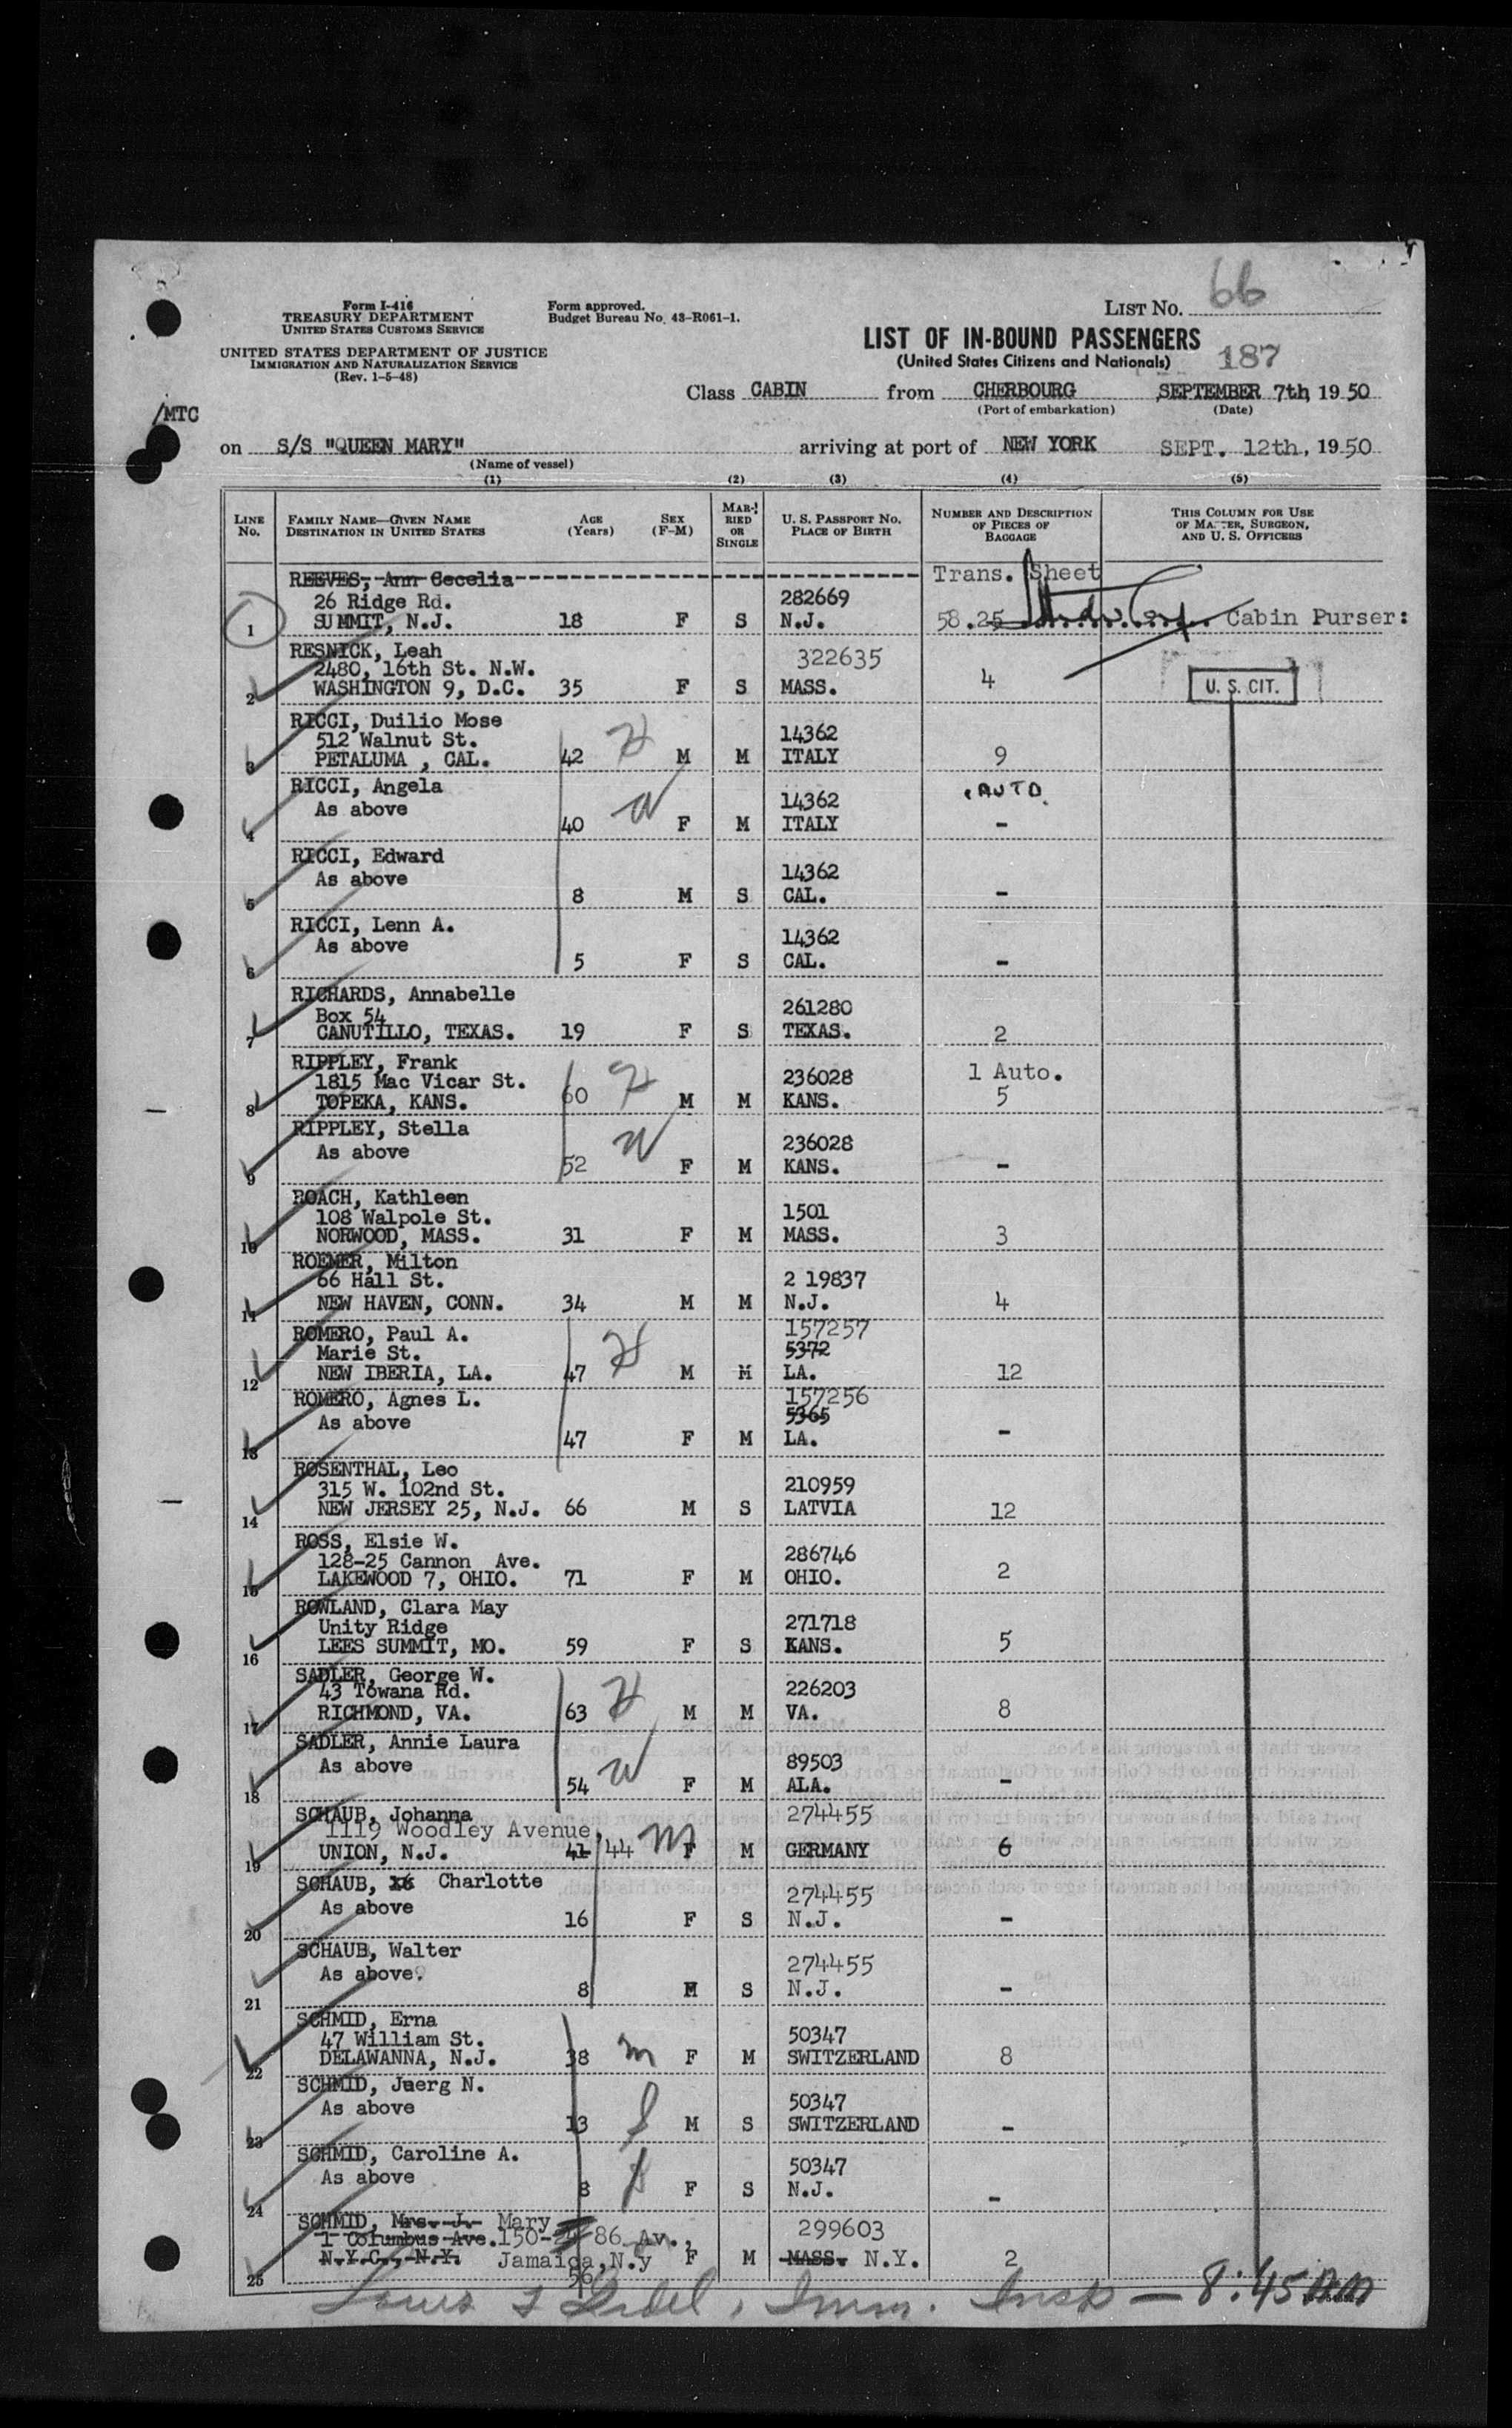 Form I-416
TREASURY DEPARTMENT
UNITED STATES CUSTOMS SERVICE
Form approved.
Budget Bureau No. 43-R061-1.
LIST NO. 66
UNITED STATES DEPARTMENT OF JUSTICE
IMMIGRATION AND NATURALIZATION SERVICE
(Rev. 1-5-48)
LIST OF IN-BOUND PASSENGERS
(United States Citizens and Nationals) 187
Class CABIN from CHERBOURG SEPTEMBER 7th, 1950
(Port of embarkation) (Date)
/MTC
on S/S "QUEEN MARY" arriving at port of NEW YORK SEPT. 12th, 1950
(Name of vessel)
(1) (2) (3) (4) (5)
LINE NO. FAMILY NAME—GIVEN NAME DESTINATION IN UNITED STATES AGE (Years) SEX (F-M) MARRIED OR SINGLE U. S. PASSPORT NO. PLACE OF BIRTH NUMBER AND DESCRIPTION OF PIECES OF BAGGAGE THIS COLUMN FOR USE OF MASTER, SURGEON, AND U. S. OFFICERS
REEVES, Ann Cecelia Trans. Sheet
26 Ridge Rd. 282669
1 SUMMIT, N.J. 18 F S N.J. 58.25 Cabin Purser:
RESNICK, Leah 322635
2480, 16th St. N.W.
2 WASHINGTON 9, D.C. 35 F S MASS. 4 U. S. CIT.
RICCI, Duilio Mose
512 Walnut St. 14362
3 PETALUMA , CAL. 42 H M M ITALY 9
RICCI, Angela AUTO.
As above 14362
4 40 W F M ITALY -
RICCI, Edward
As above 14362
5 8 M S CAL. -
RICCI, Lenn A.
As above 14362
6 5 F S CAL. -
RICHARDS, Annabelle
Box 54 261280
7 CANUTILLO, TEXAS. 19 F S TEXAS. 2
RIPPLEY, Frank
1815 Mac Vicar St. 236028 1 Auto.
8 TOPEKA, KANS. 60 H M M KANS. 5
RIPPLEY, Stella
As above 236028
9 52 W F M KANS. -
ROACH, Kathleen
108 Walpole St. 1501
10 NORWOOD, MASS. 31 F M MASS. 3
ROEMER, Milton
66 Hall St. 2 19837
11 NEW HAVEN, CONN. 34 M M N.J. 4
ROMERO, Paul A. 157257
Marie St. 5372
12 NEW IBERIA, LA. 47 H M M LA. 12
ROMERO, Agnes L. 157256
As above 5365
13 47 F M LA. -
ROSENTHAL, Leo
315 W. 102nd St. 210959
14 NEW JERSEY 25, N.J. 66 M S LATVIA 12
ROSS, Elsie W.
128-25 Cannon Ave. 286746
15 LAKEWOOD 7, OHIO. 71 F M OHIO. 2
ROWLAND, Clara May
Unity Ridge 271718
16 LEES SUMMIT, MO. 59 F S KANS. 5
SADLER, George W.
43 Towana Rd. 226203
17 RICHMOND, VA. 63 H M M VA. 8
SADLER, Annie Laura
As above 89503
18 54 W F M ALA. -
SCHAUB, Johanna 274455
1119 Woodley Avenue,
19 UNION, N.J. 41 44 M F M GERMANY 6
SCHAUB, 16 Charlotte
As above 274455
20 16 F S N.J. -
SCHAUB, Walter
As above. 274455
21 8 M S N.J. -
SCHMID, Erna
47 William St. 50347
22 DELAWANNA, N.J. 38 m F M SWITZERLAND 8
SCHMID, Juerg N.
As above 50347
23 13 M S SWITZERLAND -
SCHMID, Caroline A.
As above 50347
24 8 F S N.J. -
SCHMID, Mrs. J. Mary
1 Columbus Ave. 150- 86 Av., 299603
N.Y.C., N.Y. Jamaica, N.y F M MASS. N.Y. 2
25 56
Louis Imm. Insp — 8:45 AM